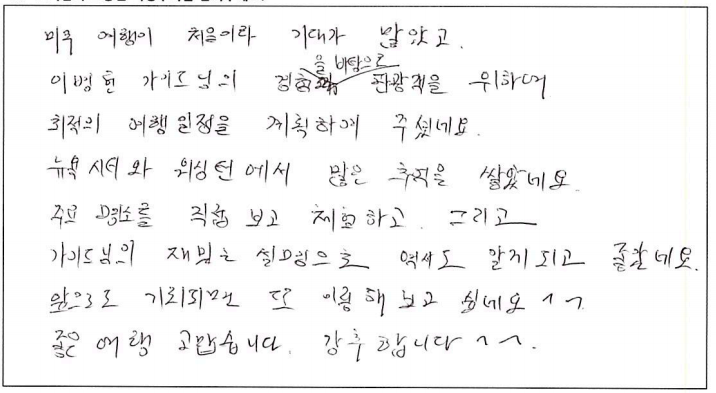 미주 여행이 처음이라 기대가 많았고.
이병헌 가이드님의 경험을 바탕으로 관광객을 위하여
최적의 여행일정을 계획하여 주셨네요.
뉴욕 시티와 워싱턴에서 많은 추억을 쌓았네요.
주요 명소를 직접 보고 체험하고. 그리고
가이드님의 재밌는 설명으로 역사도 알게되고 즐겁네요.
앞으로도 기회되면 또 이용해 보고 싶네요 ^^
좋은 여행 고맙습니다. 강추합니다 ^^.